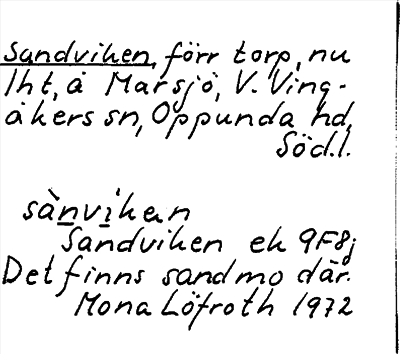 Sandviken, förr torp, nu
lht, å Marsjö, V. Ving-
åkers sn, Oppunda hd,
Södl.
sànviken
Sandviken ek 9F8j
Det finns sandmo där.
Mona Löfroth 1972